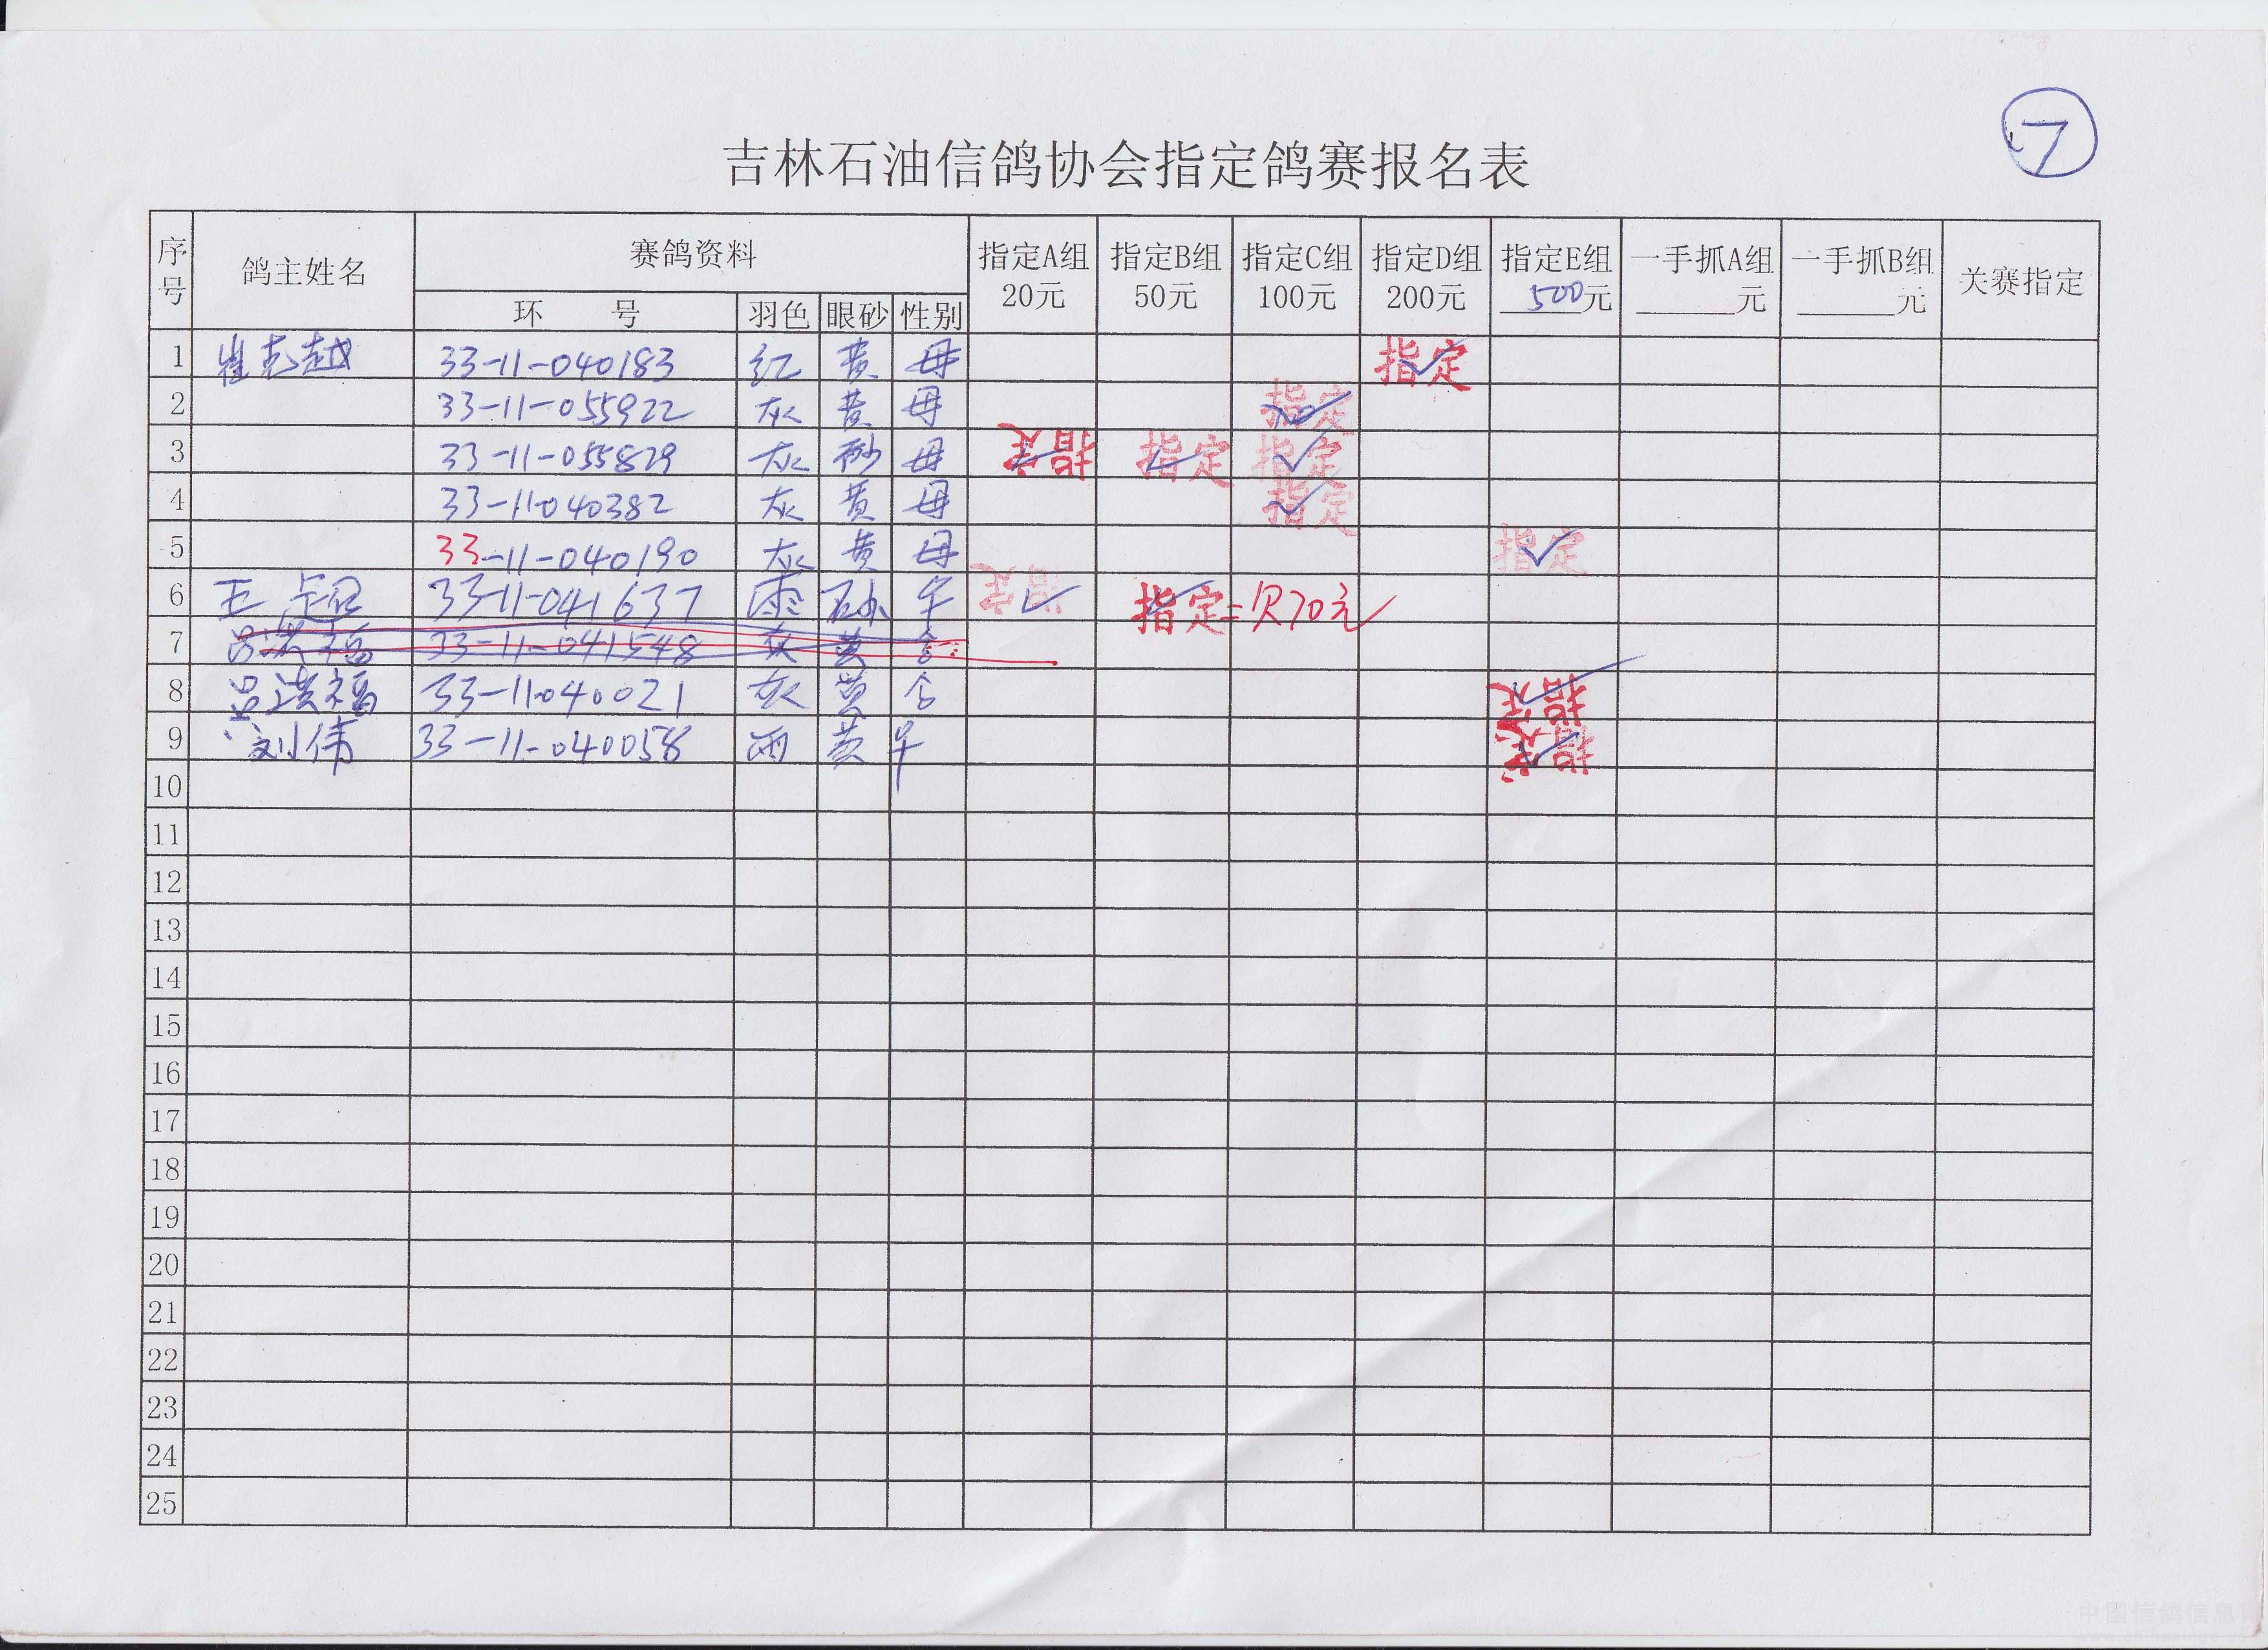 ⑦
吉林石油信鸽协会指定鸽赛报名表
序号 鸽主姓名 赛鸽资料 指定A组 20元 指定B组 50元 指定C组 100元 指定D组 200元 指定E组 500元 一手抓A组 ______元 一手抓B组 ______元 关赛指定
环 号 羽色 眼砂 性别
1 崔志越 33-11-040183 红 黄 母 指定 ✓
2 33-11-055922 灰 黄 母 指定 ✓
3 33-11-055829 灰 砂 母 指定 ✓ 指定 ✓ 指定 ✓
4 33-11-040382 灰 黄 母 指定 ✓
5 33-11-040190 灰 黄 母 指定 ✓
6 王超 33-11-041637 雨 砂 指定 ✓ 指定 ✓ = 欠70元
7 吕洪福 33-11-041548 灰 黄
8 吕洪福 33-11-040021 灰 黄 指定 ✓
9 刘伟 33-11-040058 雨 黄 指定 ✓
10
11
12
13
14
15
16
17
18
19
20
21
22
23
24
25
中国信鸽信息